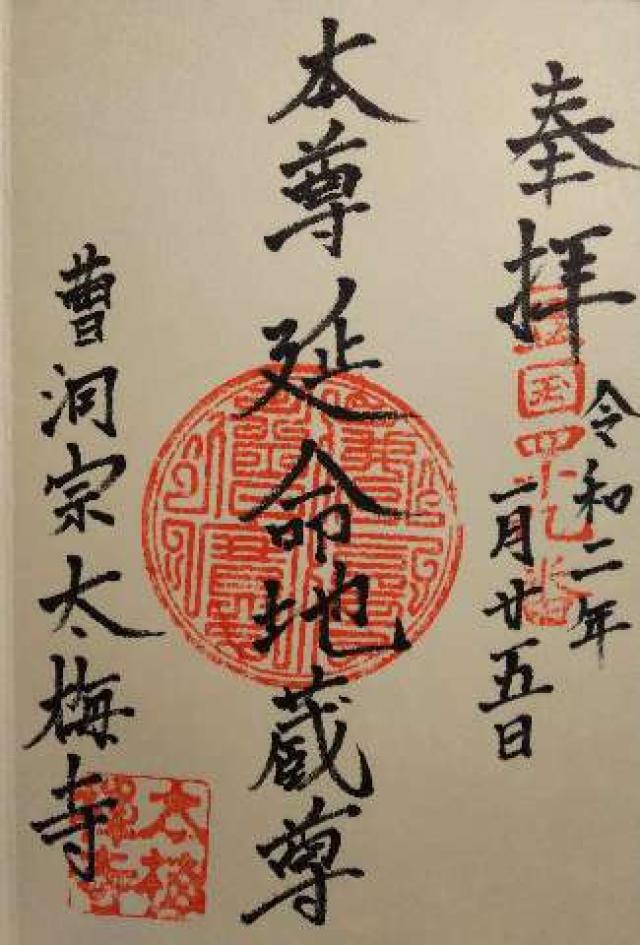 奉拝
令和二年
一月廿五日
本尊延命地蔵尊
曹洞宗太梅寺
豆国四十九番
太梅